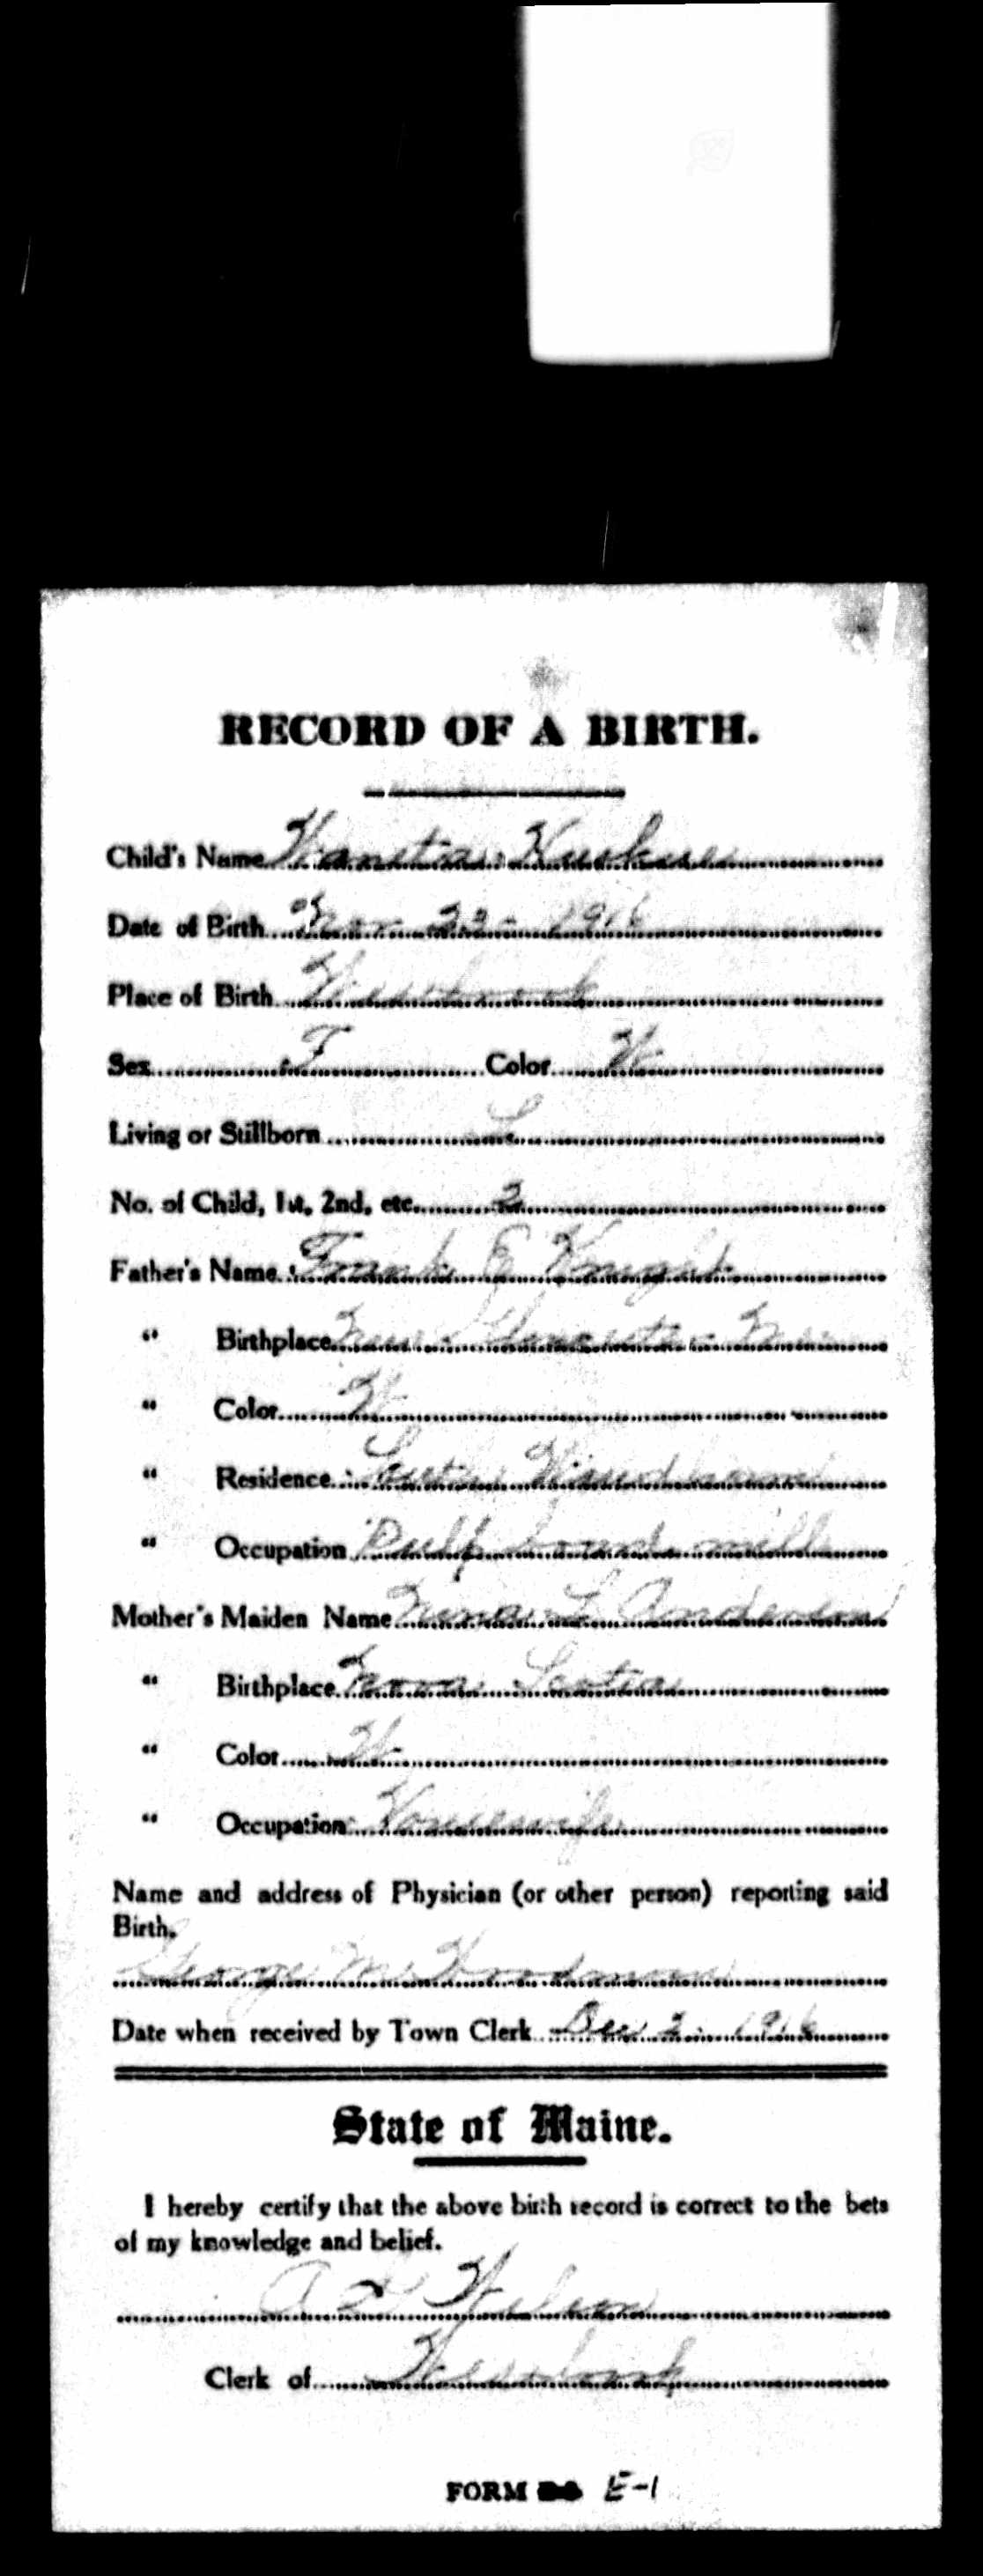 RECORD OF A BIRTH.
Child's Name
Date of Birth 22 - 1916
Place of Birth Westbrook
Sex F Color W
Living or Stillborn L
No. of Child, 1st, 2nd, etc. 2
Father's Name Frank E Knight
" Birthplace New Gloucester Me
" Color W
" Residence South Windham
" Occupation Pulp board mill
Mother's Maiden Name L
" Birthplace Nova Scotia
" Color W
" Occupation Housewife
Name and address of Physician (or other person) reporting said
Birth.
George M. Woodman
Date when received by Town Clerk Dec 2 - 1916
State of Maine.
I hereby certify that the above birth record is correct to the bets
of my knowledge and belief.
Clerk of Westbrook
FORM E-1